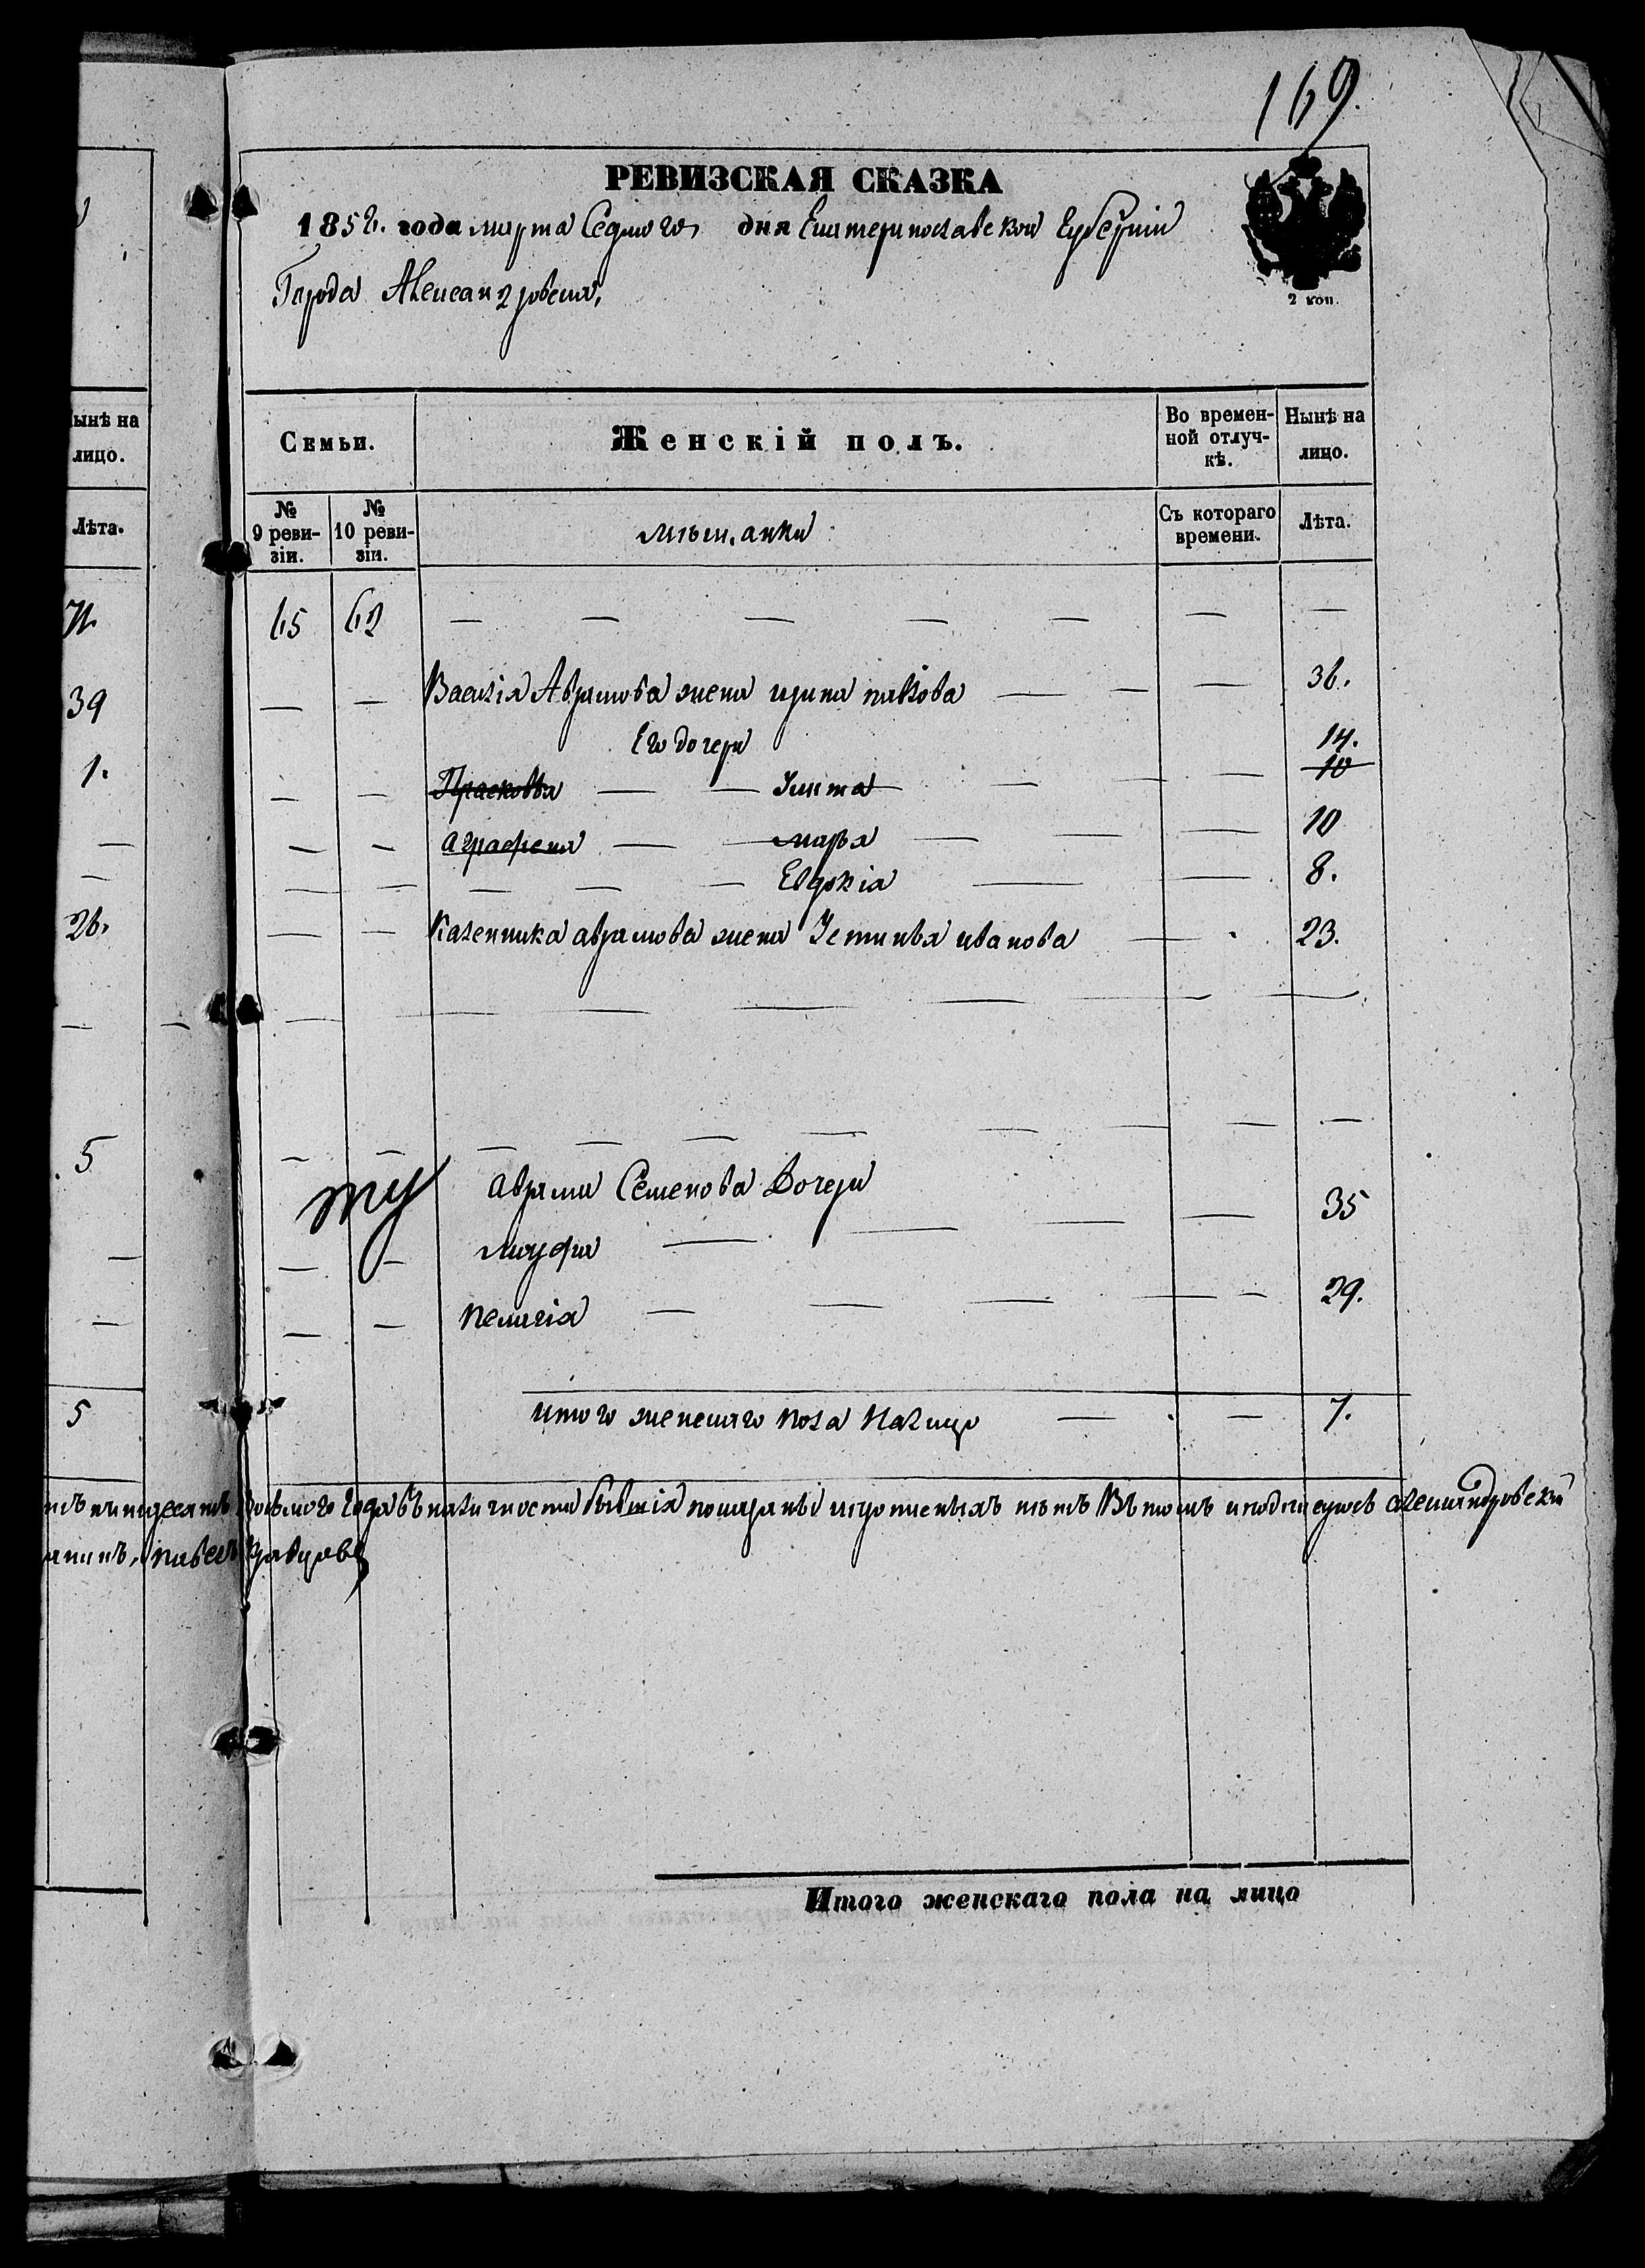 169.
РЕВИЗСКАЯ СКАЗКА
1858. года марта Седмого дня Екатеринославской Губерніи
Города Александровска,
2 коп.
Нынѣ на лицо.
Лѣта.
39
1.
26.
5
5
Семьи.
Женскій полъ.
Во временной отлучкѣ.
Нынѣ на лицо.
№ 9 ревизіи.
№ 10 ревизіи.
мѣщанки
Съ котораго времени.
Лѣта.
65 62 — — — — — — —
— — Василія Абрамова жена ирина павлова — — — 36.
Его дочери 14.
— — Прасковья — — — — 10
— — аграфена — — марья — — — 10
— — — — — Евдокія — — 8.
— — Каленника абрамова жена Устинья иванова — 23.
ту
абрама Семенова Дочери 35
— — — — — —
— — пелагія — — — — — 29.
итого женскаго пола налицо — — 7.
пятьдесятъ восьмого года въ наличности бывшія показаны и прописныхъ нѣтъ Въ томъ и подписуюсь александровскій
павелъ
Итого женскаго пола на лицо